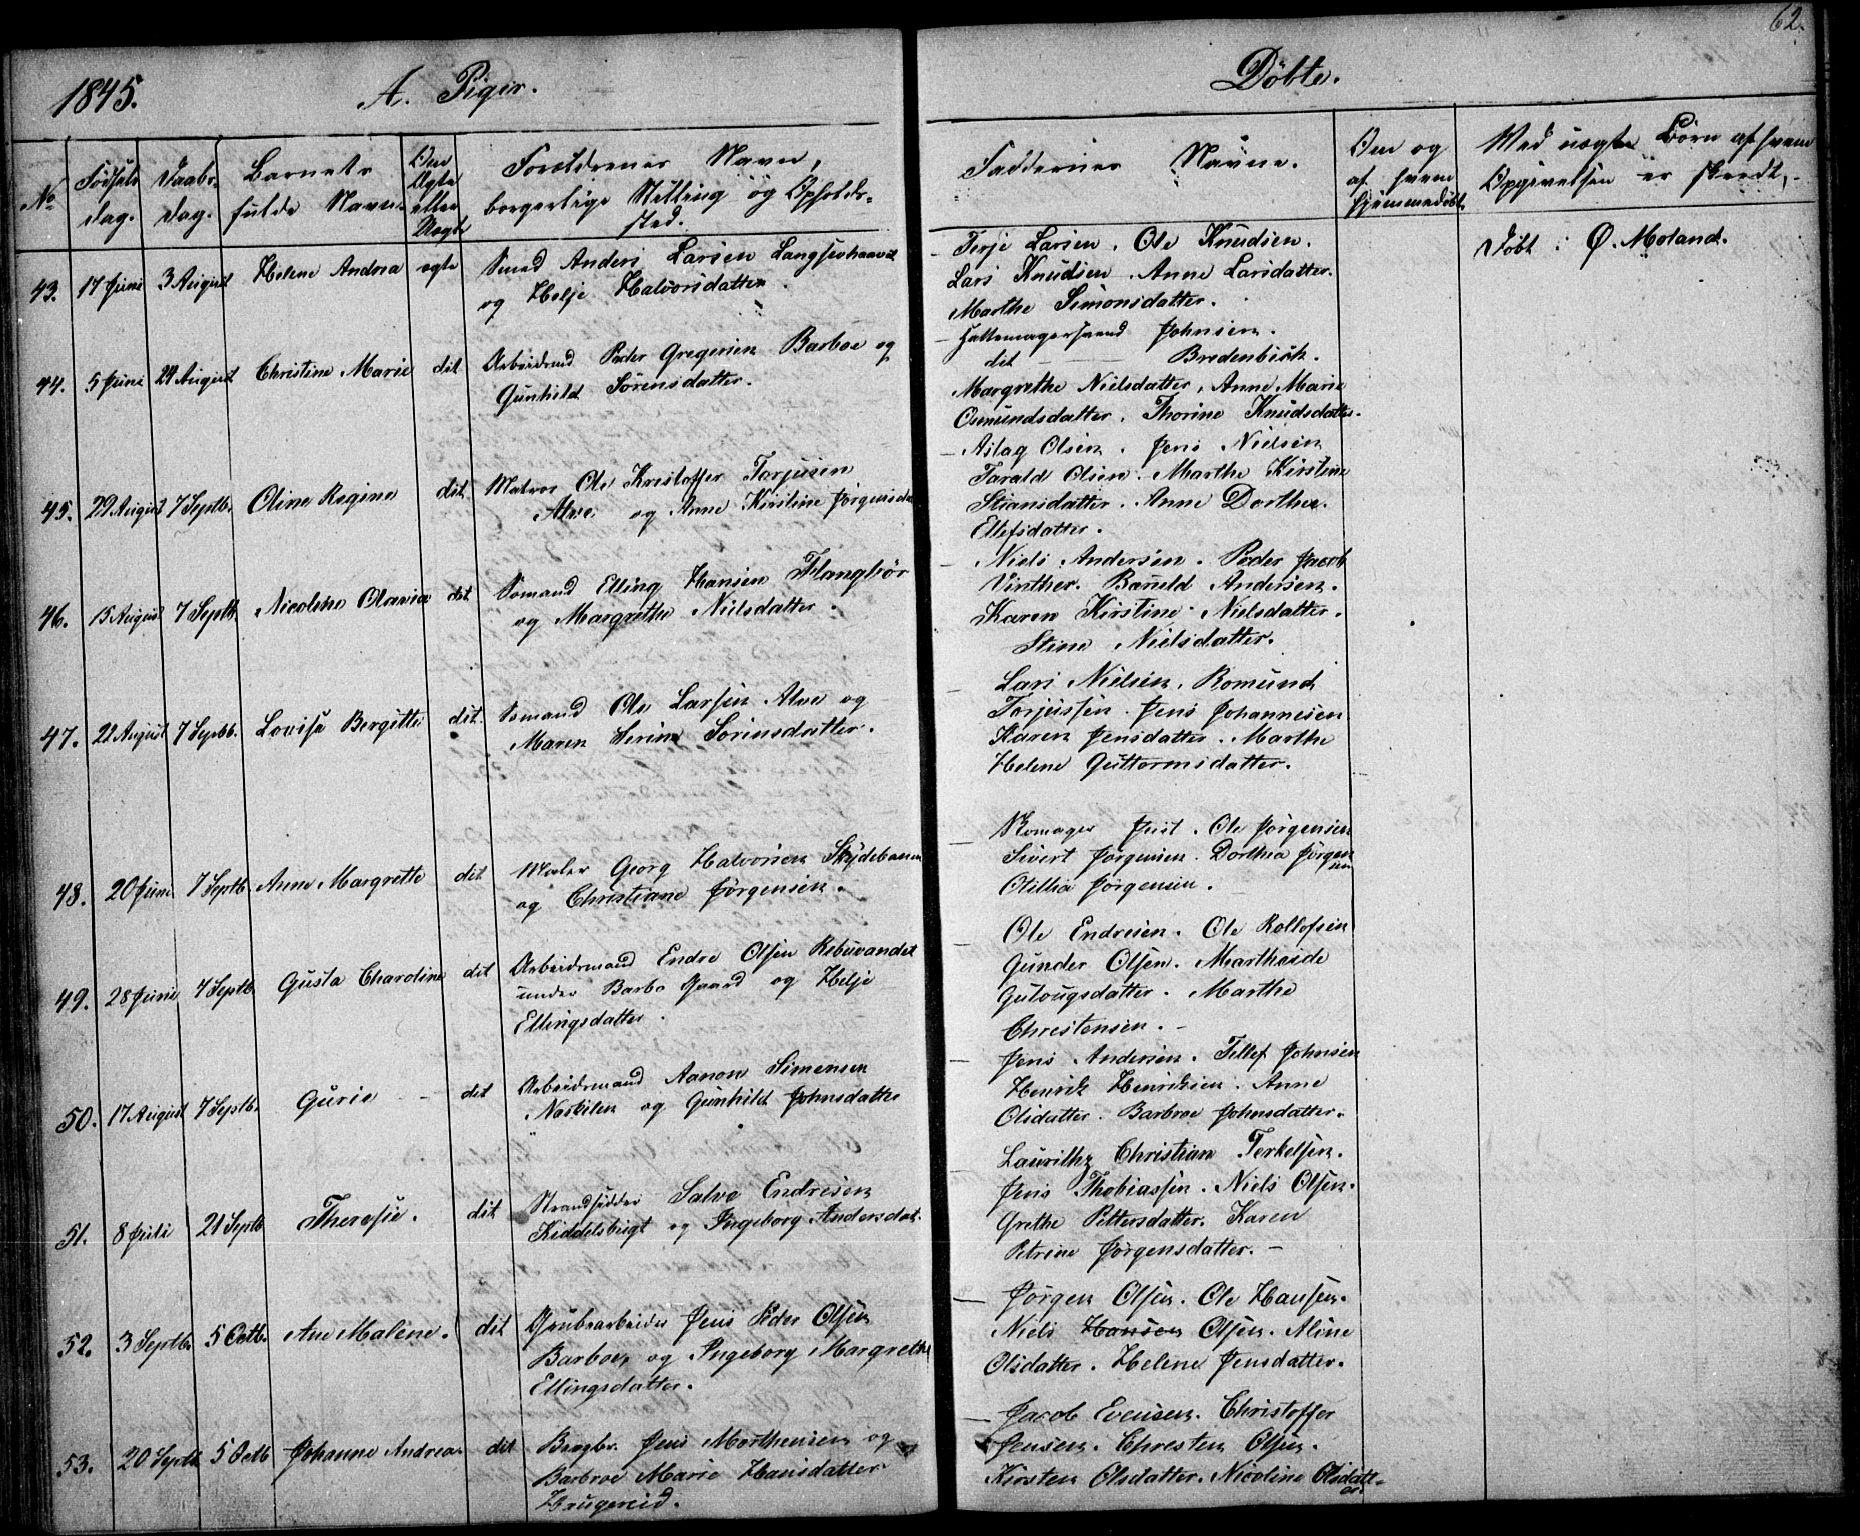 62.
1845. A. Piger. Döbte.
No
Födsels dag.
Daabs- dag.
Barnets fulde Navn.
Om Ægte eller Uægte
Forældrenes Navn, borgerlige Stilling og Opholds- sted.
Faddernes Navne.
Om og af hvem hjemmedöbt
Ved uægte Börn af hvem Opgivelsen er skeedt.
43. 17 Juni 3 August Helene Andrea ægte
Smed Anders Larsen
og Helje Halvorsdatter.
Terje Larsen. Ole Knudsen.
Lars Knudsen. Anne Larsdatter.
Marthe Simonsdatter.
Döbt i Ø. Moland.
44. 5 Juni 24 August Christine Marie dit
Arbeidsmd Peder Gregersen Barboe og
Gunhild Sörensdatter.
Hattemagersvend Johnsen.
dit Bredenbäk.
Margrethe Nielsdatter, Anne Marie
Osmundsdatter. Thorine Knudsdatter.
45. 29 August 7 Septb. Oline Regine dit
Matros Ole Kristoffer Torjusen
Alve og Anne Kirstine Jörgensd
Aslag Olsen. Jens Nielsen
Tarald Olsen. Marthe Kirstine
Stiansdatter. Anne Dorthea
Ellefsdatter.
46. 15 August 7 Septb. Nicoline Olavia dit
Sömand Elling Hansen
og Margrethe Nielsdatter.
Niels Andersen. Peder Jacob
Vinther. Baruld Andersen.
Karen Kirstine Nielsdatter.
Stine Nielsdatter.
47. 21 August 7 Septb. Lovise Bergitte dit.
Sömand Ole Larsen Alve og
Maren Serine Sörinsdatter.
Lars Nielsen, Romund
Torjussen. Jens Johannesen
Karen Jensdatter. Marthe
Helene Guttormsdatter.
48. 20 Juni 7 Septb. Anne Margrette dit
Maler Georg Halvorsen Skydebanen
og Christiane Jörgensen.
Skomager Just. Ole Jörgensen
Sivert Jörgensen. Dorthea Jörgen
sen
Otillia Jörgensen.
49. 28 Juni 7 Septb. Gusta Charoline dit
Arbeidsmand Endre Olsen
under Barbo Gaard og Helje
Ellingsdatter.
Ole Endresen. Ole Rollofsen
Gunder Olsen. Martheide
Gulougsdatter. Marthe
Christensen. -
50. 17 August 7 Septb. Gurie - dit
Arbeidsmand Aanon Simensen
Neskilen og Gunhild Johnsdatter
Jens Andersen. Tellef Johnsen
Henrik Henriksen. Anne
Olsdatter. Barbroe Johnsdatter.
51. 8 Juli 21 Septb Theresie. dit
Strandsidder Salve Endresen
Kiddelsbugt og Ingeborg Andersdat.
Laurithz Christian Terkelsen.
Jens Thobiassen. Niels Olsen.
Grethe Pettersdatter. Karen
Petrine Jörgensdatter. -
52. 3 Septb. 5 Octb. Ane Malene. dit
Grubearbeider Jens Peder Olsen
Barboe, og Ingeborg Margrethe
Ellingsdatter.
Jörgen Olsen. Ole Hansen.
Niels Hansen Olsen. Aline
Olsdatter. Helene Jensdatter.
53. 20 Septb 5 Octb Johanne Andrea dit
Bergbr. Jens Morthensen og
Barbroe Marie Hansdatter
Jacob Evensen. Christoffer
Jensen. Chresten Olsen.
Kirsten Olsdatter. Nicoline Olsdatt-
er.